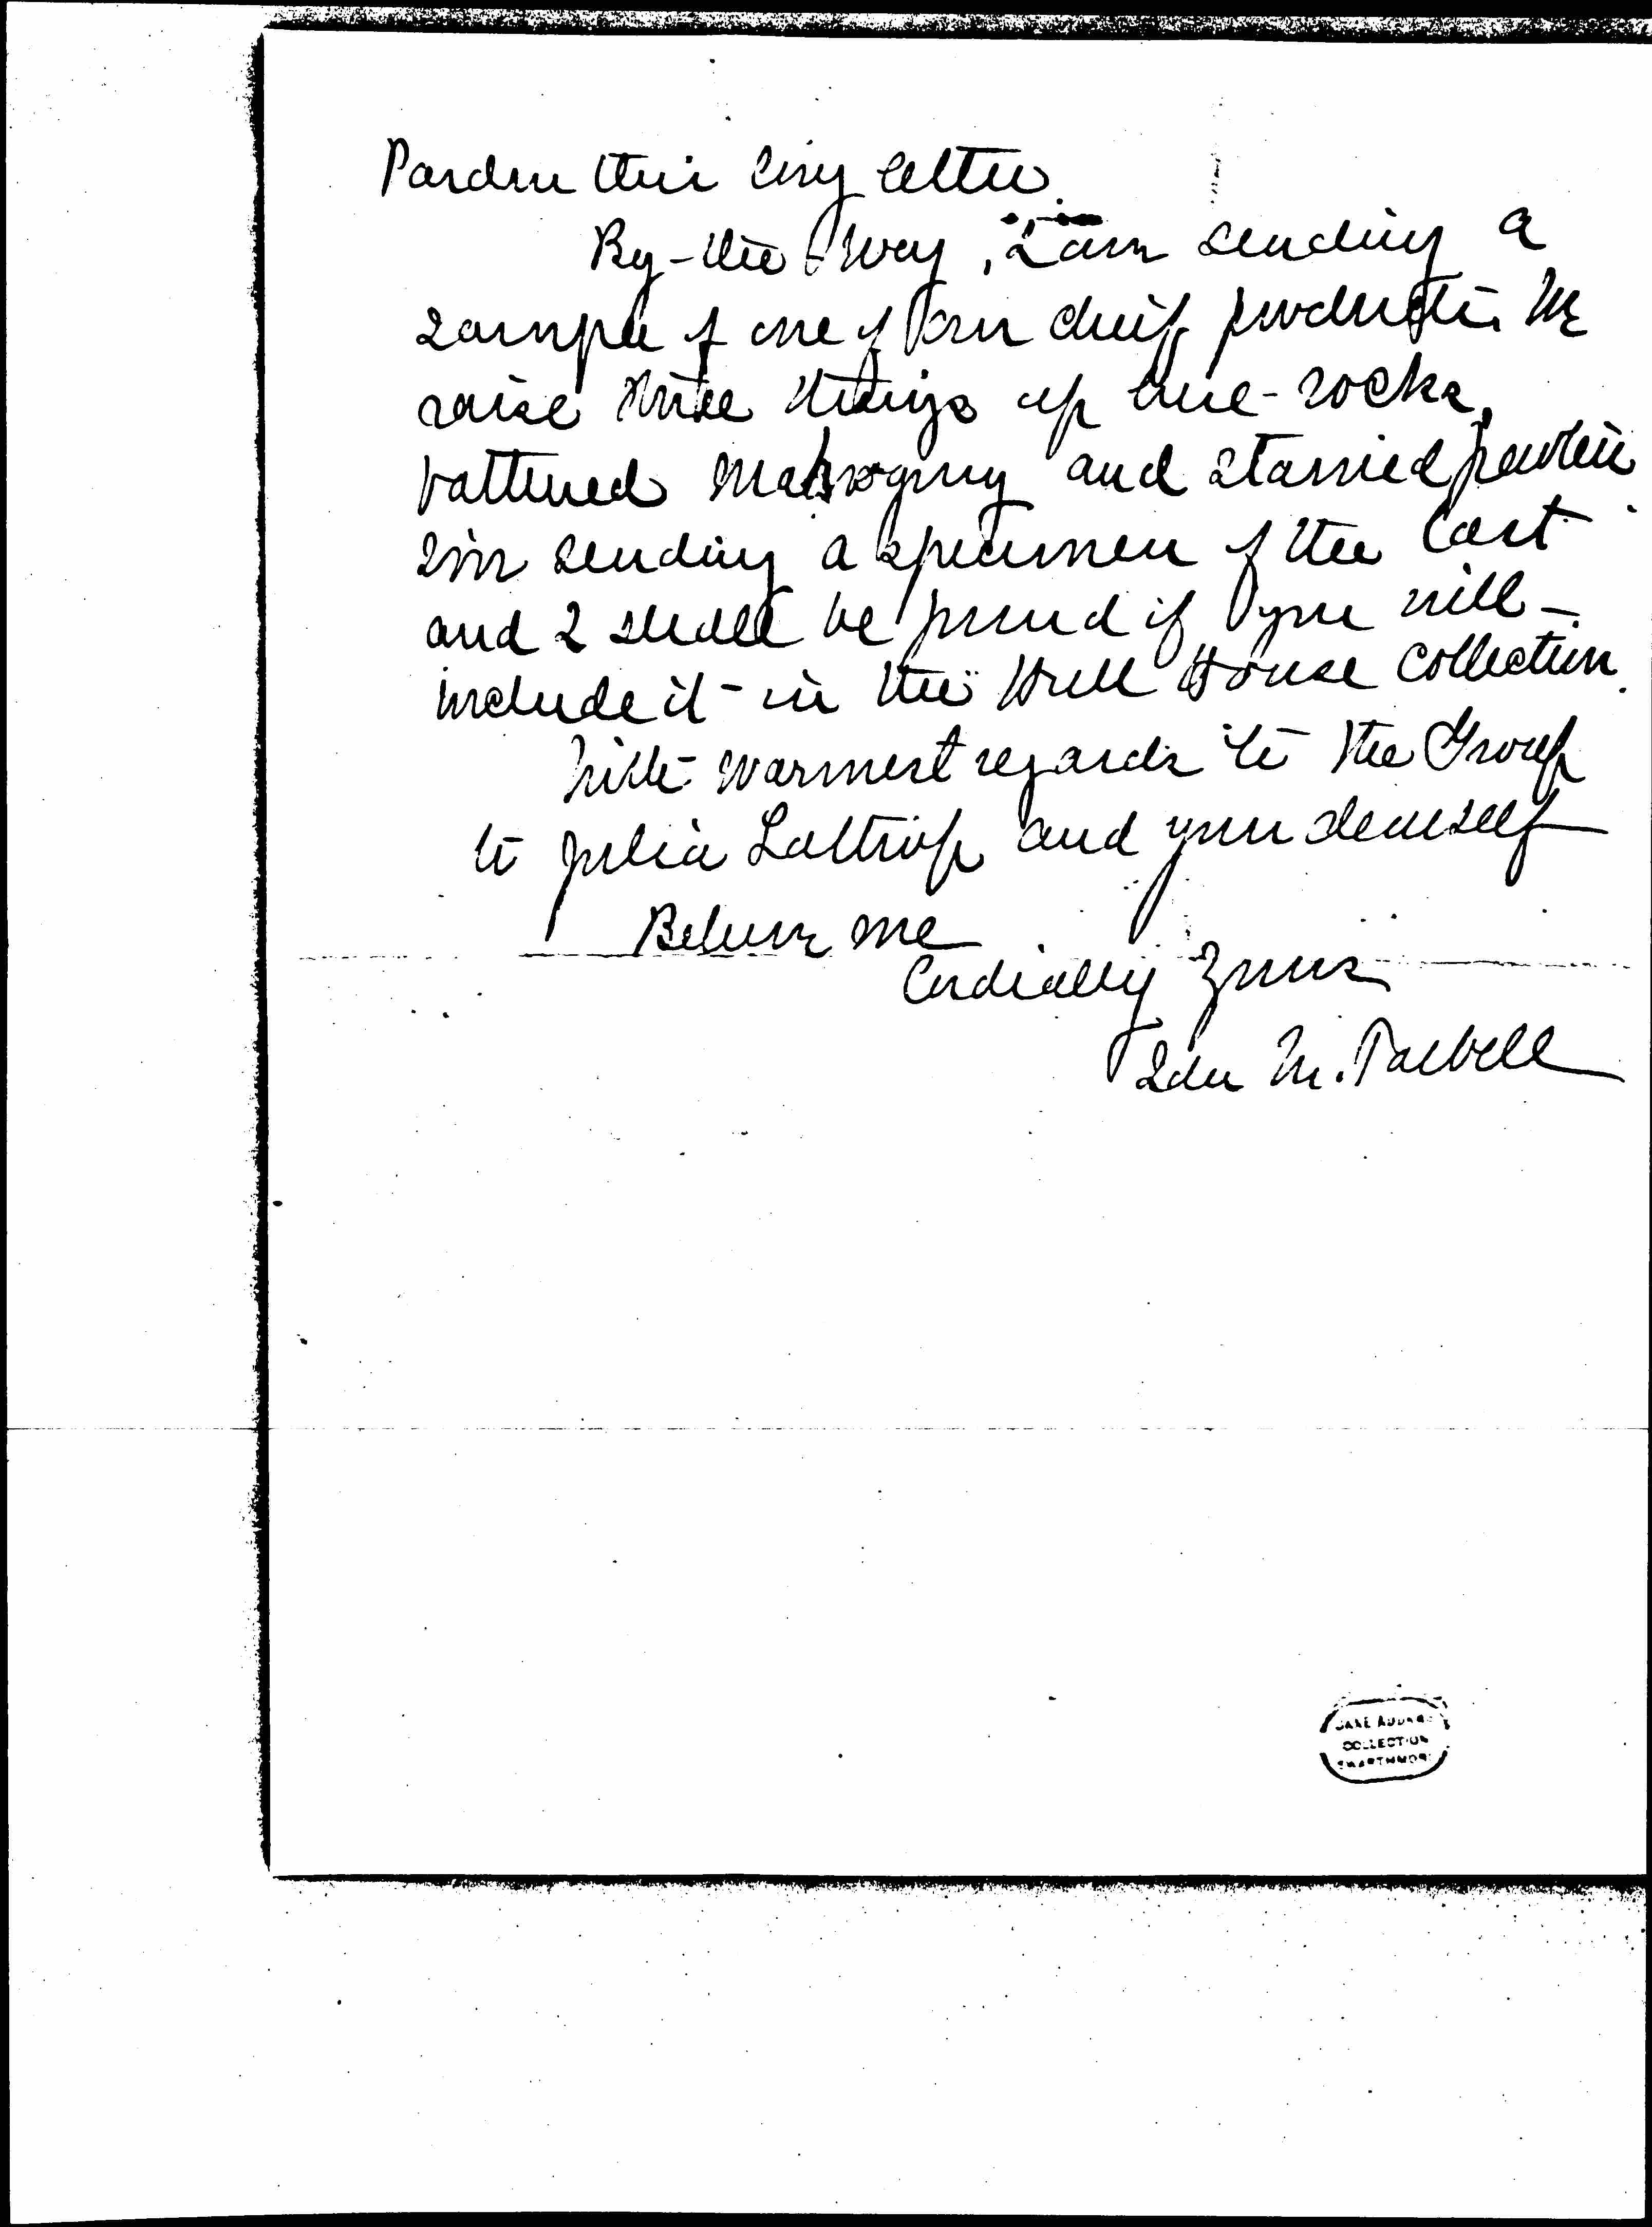 Pardon this long letter.
By-the-way, I am sending a
sample of one of our chief products. We
raise three things up here - rocks,
battered mahogany and stained pewter
I'm sending a specimen of the last
and I shall be proud if you will
include it in the Hull House collection.
With warmest regards to the Group
to Julia Lathrop and your dear self
Believe me
Cordially Yours
Ida M. Tarbell
JANE ADDAMS
COLLECTION
SWARTHMORE